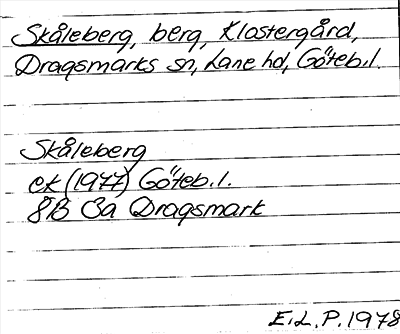 Skåleberg, berg, Klostergård,
Dragsmarks sn, Lane hd, Göteb.l.
Skåleberg
ek (1977) Göteb.l.
8B 3a Dragsmark
E.L.P. 1978